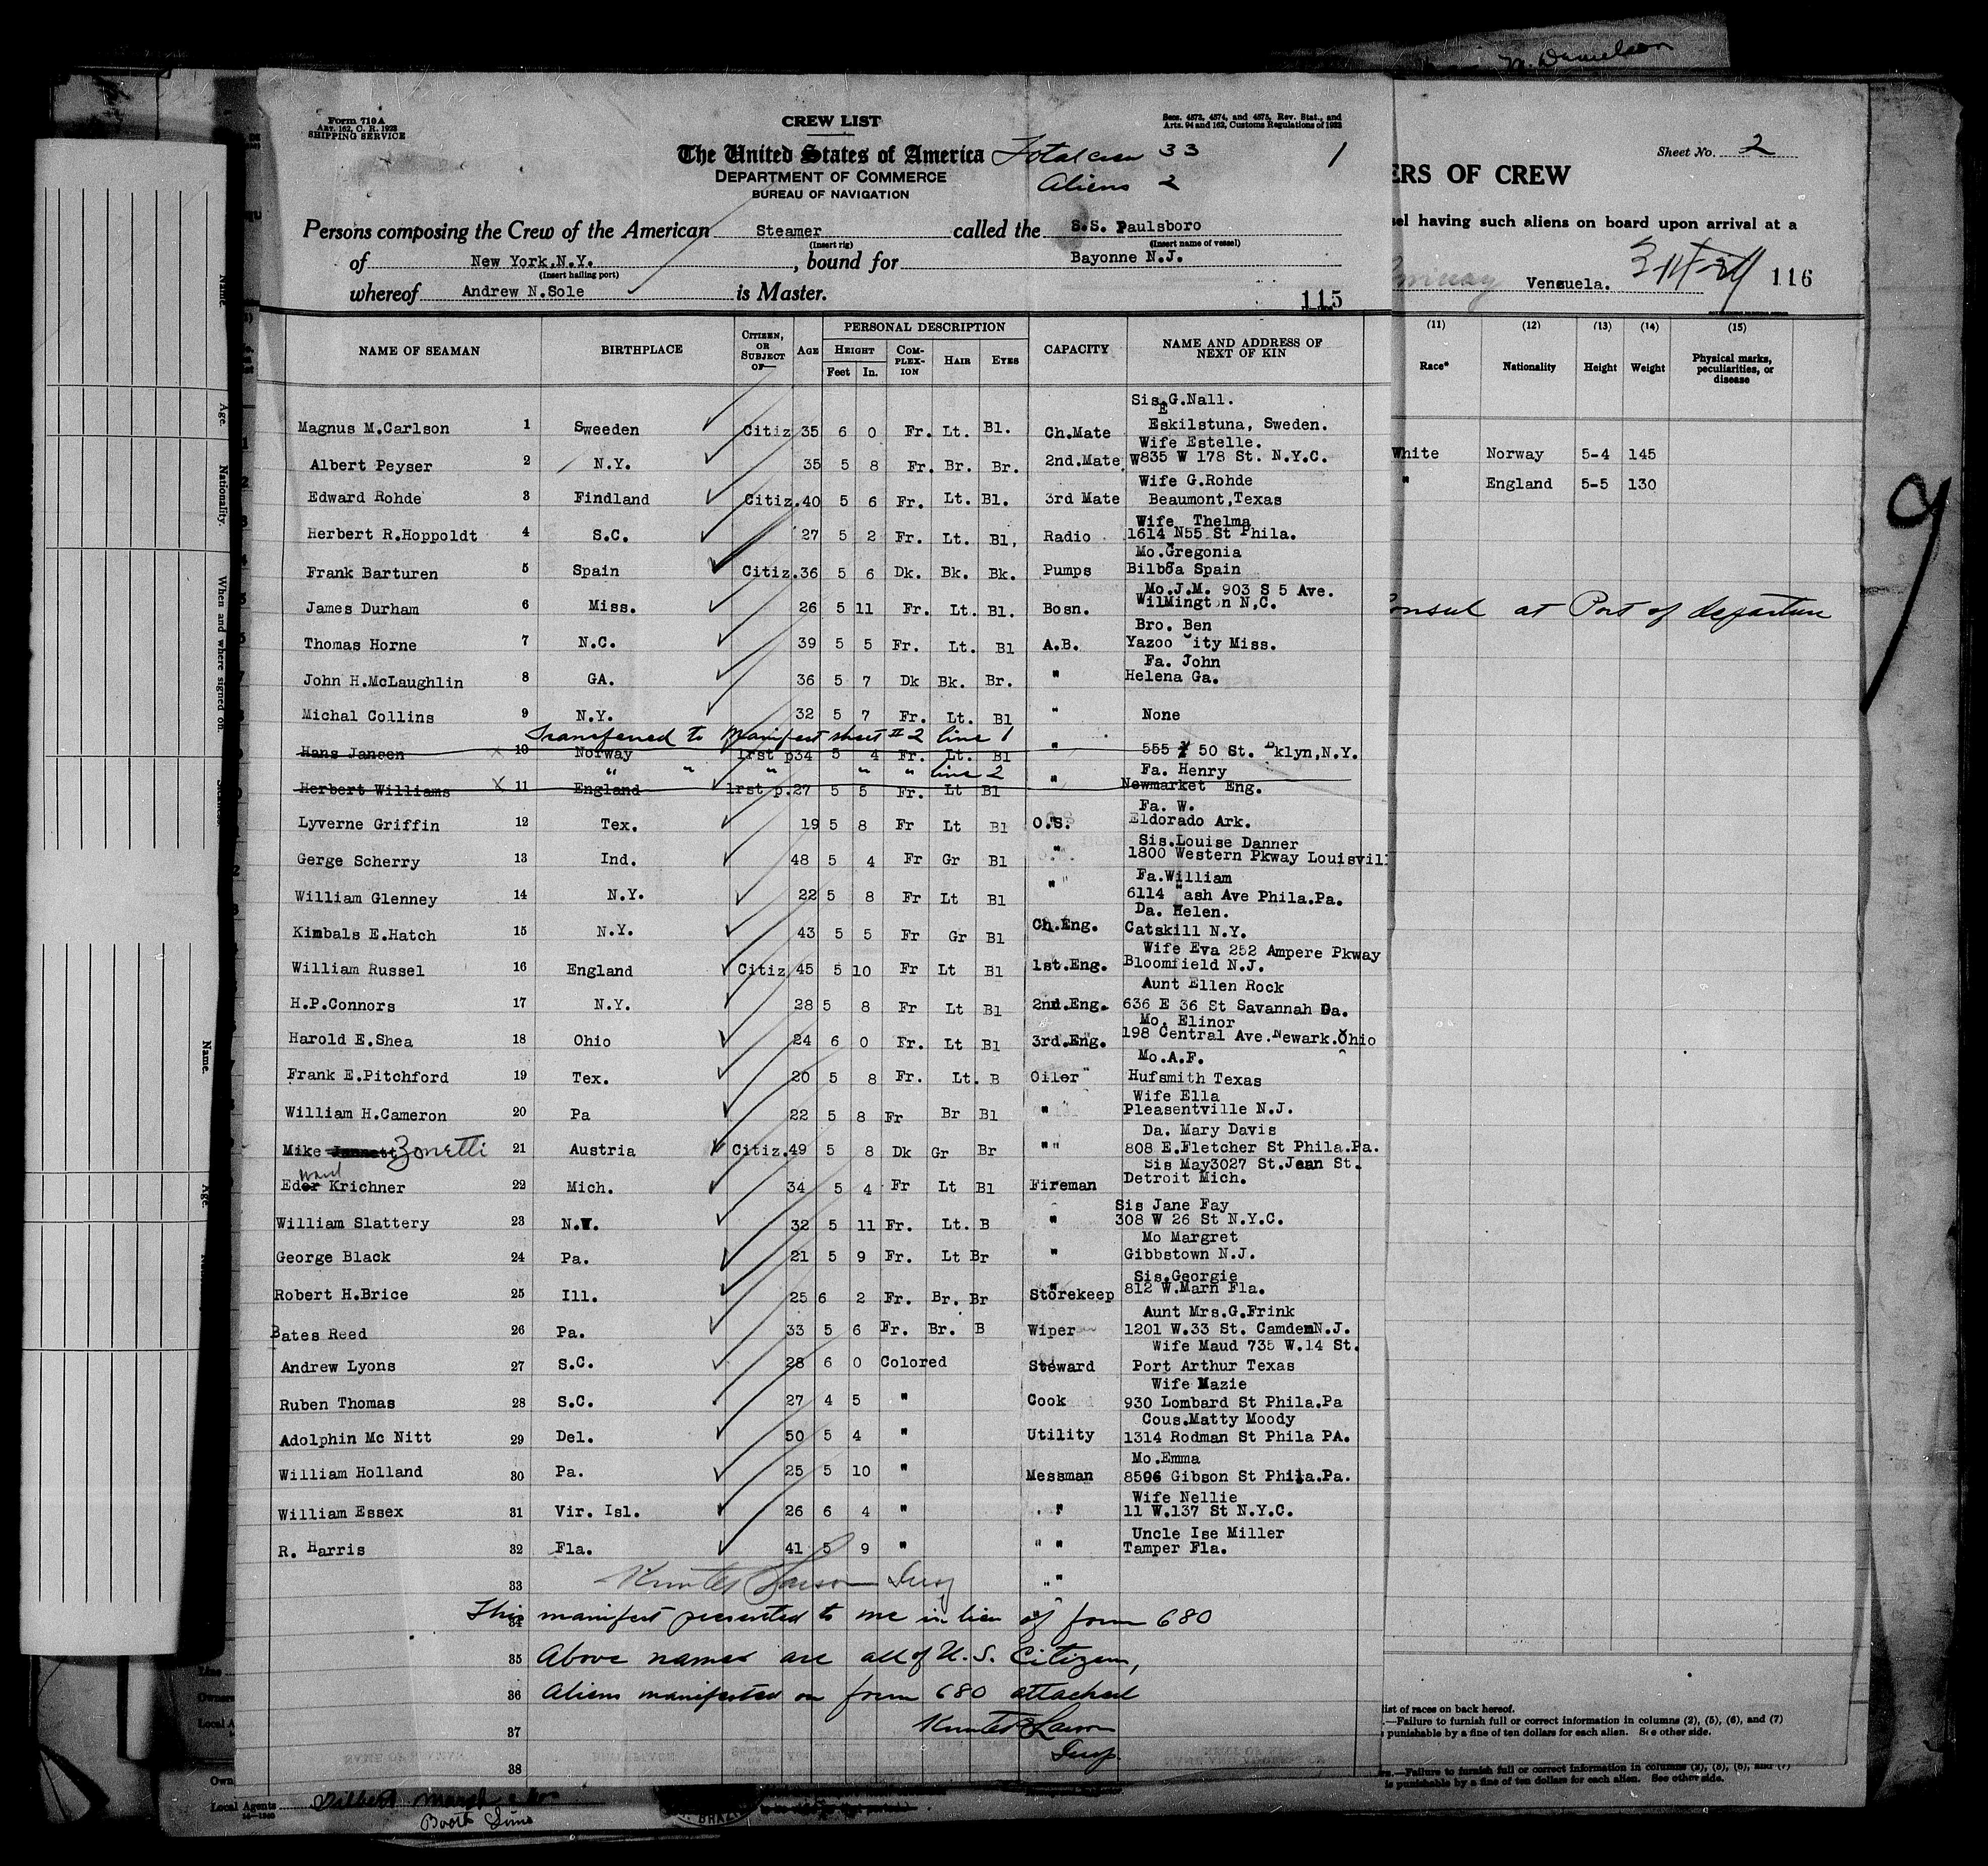 N. Danielson
Form 710A
ART. 162, C. R. 1923
SHIPPING SERVICE
CREW LIST
Secs. 4573, 4574, and 4575, Rev. Stat., and
Arts. 94 and 162, Customs Regulations of 1923
The United States of America Total crew 33
1
DEPARTMENT OF COMMERCE Aliens 2
BUREAU OF NAVIGATION
Persons composing the Crew of the American Steamer called the S.S. Paulsboro
(Insert rig) (Insert name of vessel)
of New York,N.Y. , bound for Bayonne N.J.
(Insert hailing port)
whereof Andrew N.Sole is Master.
115
NAME OF SEAMAN BIRTHPLACE CITIZEN, OR SUBJECT OF— AGE PERSONAL DESCRIPTION CAPACITY NAME AND ADDRESS OF NEXT OF KIN
HEIGHT COMPLEXION HAIR EYES
Feet In.
Sis.G.Nall.
Magnus M.Carlson 1 Sweeden Citiz 35 6 0 Fr. Lt. Bl. Ch.Mate Eskilstuna, Sweden.
Wife Estelle.
Albert Peyser 2 N.Y. 35 5 8 Fr. Br. Br. 2nd.Mate W835 W 178 St. N.Y.C.
Wife G.Rohde
Edward Rohde 3 Findland Citiz.40 5 6 Fr. Lt. Bl. 3rd Mate Beaumont,Texas
Wife Thelma
Herbert R.Hoppoldt 4 S.C. 27 5 2 Fr. Lt. Bl, Radio 1614 N55 St Phila.
Mo.Gregonia
Frank Barturen 5 Spain Citiz.36 5 6 Dk. Bk. Bk. Pumps Bilboa Spain
Mo.J.M. 903 S 5 Ave.
James Durham 6 Miss. 26 5 11 Fr. Lt. Bl. Bosn. WilMington N,C.
Bro. Ben
Thomas Horne 7 N.C. 39 5 5 Fr. Lt. Bl A.B. Yazoo City Miss.
Fa. John
John H.McLaughlin 8 GA. 36 5 7 Dk Bk. Br. " Helena Ga.
Michal Collins 9 N.Y. 32 5 7 Fr. Lt. Bl " None
Transferred to Manifest sheet # 2 line 1
Hans Jansen x 10 Norway 1rst p34 5 4 Fr. Lt. Bl " 555 50 St. Bklyn,N.Y.
" " " " " line 2
Fa. Henry
Herbert Williams X 11 England 1rst p.27 5 5 Fr. Lt Bl " Newmarket Eng.
Fa. W.
Lyverne Griffin 12 Tex. 19 5 8 Fr Lt Bl O.S. Eldorado Ark.
Sis.Louise Danner
Gerge Scherry 13 Ind. 48 5 4 Fr Gr Bl " 1800 Western Pkway Louisvill
Fa.William
William Glenney 14 N.Y. 22 5 8 Fr Lt Bl " 6114 Wash Ave Phila.Pa.
Da. Helen.
Kimbals E.Hatch 15 N.Y. 43 5 5 Fr Gr Bl Ch.Eng. Catskill N.Y.
Wife Eva 252 Ampere Pkway
William Russel 16 England Citiz 45 5 10 Fr Lt Bl 1st.Eng. Bloomfield N.J.
Aunt Ellen Rock
H.P.Connors 17 N.Y. 28 5 8 Fr Lt Bl 2nd.Eng. 636 E 36 St Savannah Ga.
Mo. Elinor
Harold E.Shea 18 Ohio 24 6 0 Fr. Lt Bl 3rd.Eng. 198 Central Ave.Newark.Ohio
Mo.A.F.
Frank E.Pitchford 19 Tex. 20 5 8 Fr. Lt. B Oiler Hufsmith Texas
Wife Ella
William H.Cameron 20 Pa 22 5 8 Fr Br Bl " Pleasentville N.J.
Da. Mary Davis
Mike Zonetti 21 Austria Citiz.49 5 8 Dk Gr Br " 808 E.Fletcher St Phila.Pa.
Sis May3027 St.Jean St.
Edward Krichner 22 Mich. 34 5 4 Fr Lt Bl Fireman Detroit Mich.
Sis Jane Fay
William Slattery 23 N.Y. 32 5 11 Fr. Lt. B " 308 W 26 St N.Y.C.
Mo Margret
George Black 24 Pa. 21 5 9 Fr. Lt Br " Gibbstown N.J.
Sis.Georgie
Robert H.Brice 25 Ill. 25 6 2 Fr. Br. Br Storekeep 812 W.Marn Fla.
Aunt Mrs.G.Frink
Bates Reed 26 Pa. 33 5 6 Fr. Br. B Wiper 1201 W.33 St. CamdenN.J.
Wife Maud 735 W.14 St.
Andrew Lyons 27 S.C. 28 6 0 Colored Steward Port Arthur Texas
Wife Mazie
Ruben Thomas 28 S.C. 27 4 5 " Cook 930 Lombard St Phila.Pa
Cous.Matty Moody
Adolphin Mc Nitt 29 Del. 50 5 4 " Utility 1314 Rodman St Phila PA.
Mo.Emma
William Holland 30 Pa. 25 5 10 " Messman 8596 Gibson St Phila.Pa.
Wife Nellie
William Essex 31 Vir. Isl. 26 6 4 " " 11 W.137 St N.Y.C.
Uncle Ise Miller
R. Harris 32 Fla. 41 5 9 " " Tamper Fla.
33 Larson Insp "
34 This manifest presented to me in lieu of form 680
35 Above names are all of U.S. Citizens,
36 Aliens manifested on form 680 attached
37 Larson
Insp.
38
Sheet No. 2
ERS OF CREW
sel having such aliens on board upon arrival at a
Venezuela. 116
(11) (12) (13) (14) (15)
Race* Nationality Height Weight Physical marks, peculiarities, or disease
White Norway 5-4 145
" England 5-5 130
onsul at Port of departure
9
list of races on back hereof.
.—Failure to furnish full or correct information in columns (2), (5), (6), and (7)
punishable by a fine of ten dollars for each alien. See other side.
.—Failure to furnish full or correct information in columns (2), (5), (6), and (7)
is punishable by a fine of ten dollars for each alien. See other side.
Name.
Age.
Nationality.
When and where signed on.
Name.
Age.
Line
Owners
Local A
Own
Local Agents
Booth Line